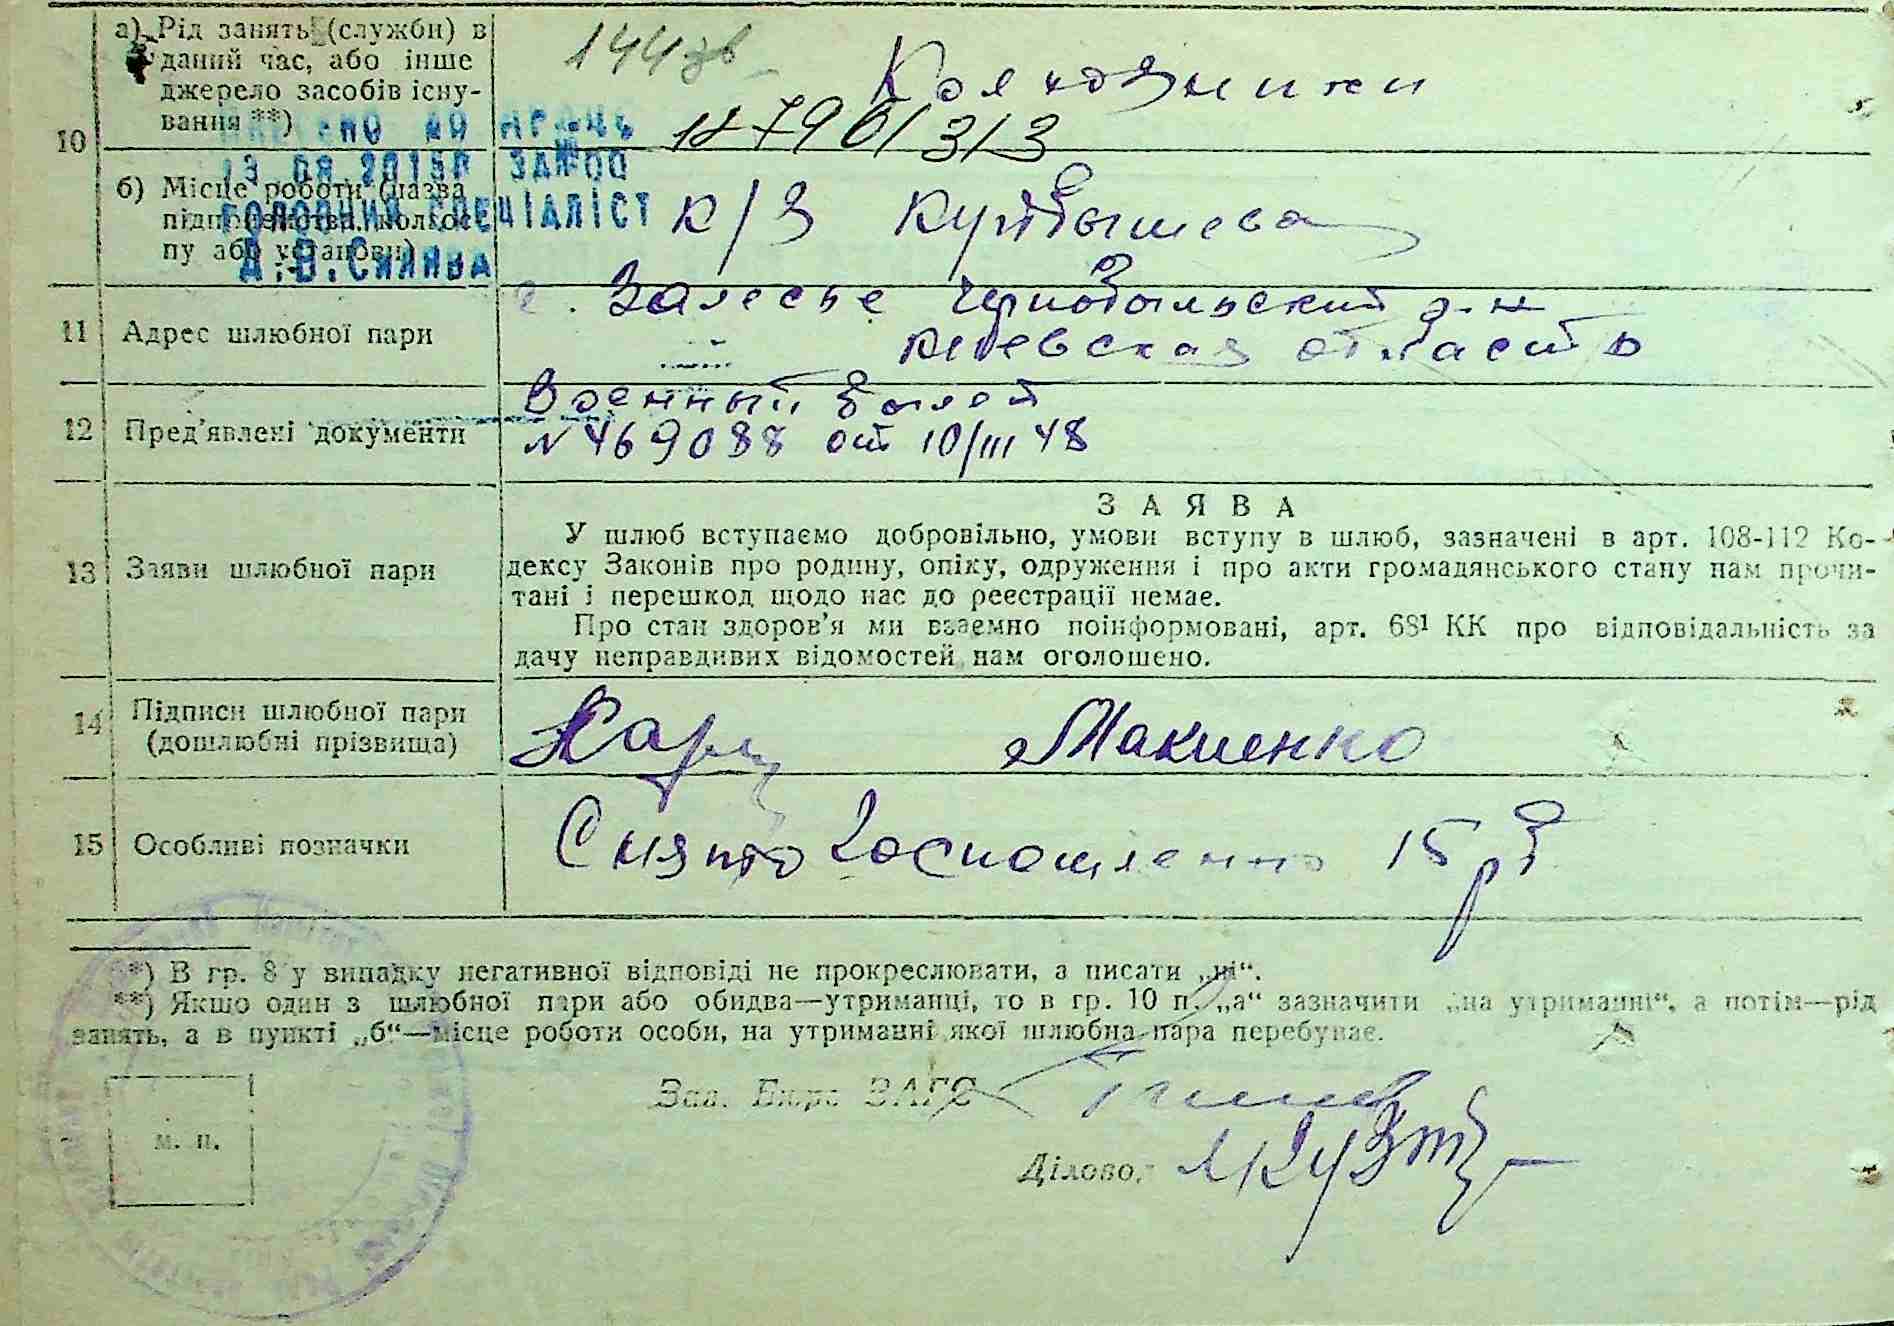 а) Рід занять (служби) в
даний час, або інше
джерело засобів існу-
вання **)
144зв
Колхозники
1790/3/3
10
13 08 2015
б) Місце роботи (назва
пу або установи)
ГОЛОВНИЙ СПЕЦІАЛІСТ
к/з Куйбышева
11 Адрес шлюбної пари
с. Залесье Чернобыльский р-н
Киевская область
12 Пред'явлені документи
Военный билет
N 469088 от 10/III 48
З А Я В А
13 Заяви шлюбної пари
У шлюб вступаємо добровільно, умови вступу в шлюб, зазначені в арт. 108-112 Ко-
дексу Законів про родину, опіку, одруження і про акти громадянського стану нам прочи-
тані і перешкод щодо нас до реєстрації немає.
Про стан здоров'я ми взаємно поінформовані, арт. 68¹ КК про відповідальність за
дачу неправдивих відомостей нам оголошено.
14 Підписи шлюбної пари
(дошлюбні прізвища)
Макиенко
15 Особливі позначки
Снято Госпошленно 15 руб
*) В гр. 8 у випадку негативної відповіді не прокреслювати, а писати „ні“.
**) Якщо один з шлюбної пари або обидва—утриманці, то в гр. 10 п. „а“ зазначити „на утриманні“, а потім—рід
занять, а в пункті „б“—місце роботи особи, на утриманні якої шлюбна пара перебуває.
Зав. Бюро ЗАГС
м. п.
Ділово.